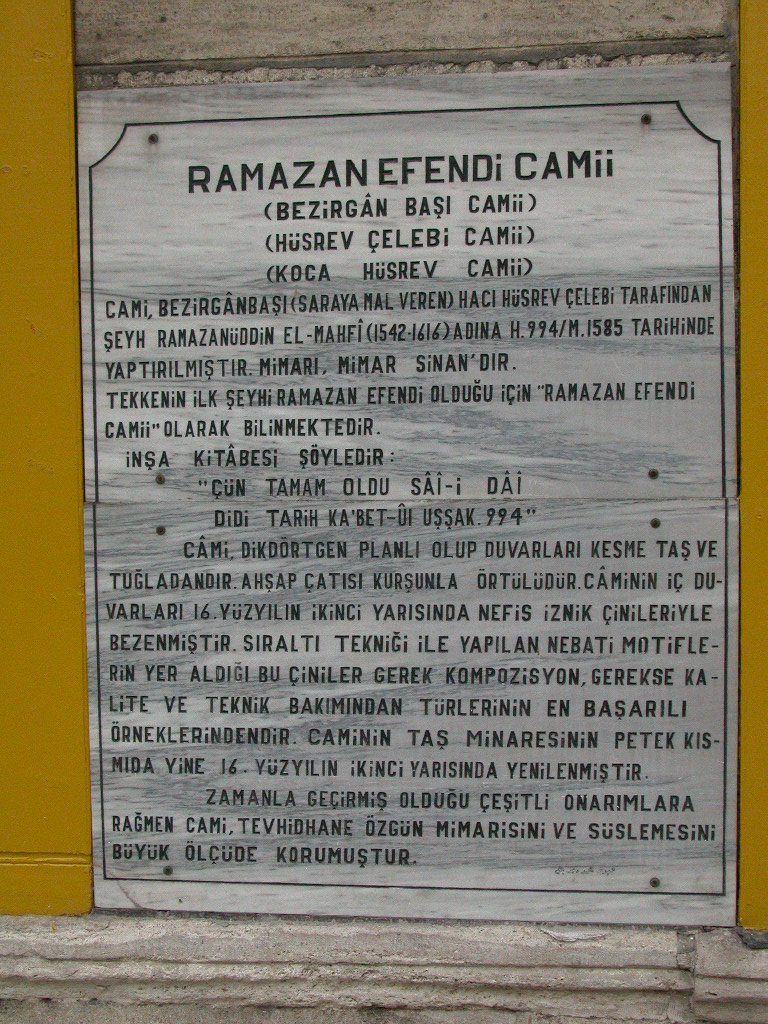 RAMAZAN EFENDİ CAMİİ
(BEZİRGÂN BAŞI CAMİİ)
(HÜSREV ÇELEBİ CAMİİ)
(KOCA HÜSREV CAMİİ)
CAMİ, BEZİRGÂNBAŞI (SARAYA MAL VEREN) HACI HÜSREV ÇELEBİ TARAFINDAN
ŞEYH RAMAZANÜDDİN EL-MAHFÎ (1542-1616) ADINA H.994/M.1585 TARİHİNDE
YAPTIRILMIŞTIR. MİMARI, MİMAR SİNAN'DIR.
TEKKENİN İLK ŞEYHİ RAMAZAN EFENDİ OLDUĞU İÇİN "RAMAZAN EFENDİ
CAMİİ" OLARAK BİLİNMEKTEDİR.
İNŞA KİTÂBESİ ŞÖYLEDİR:
"ÇÜN TAMAM OLDU SÂÎ-İ DÂÎ
DİDİ TARİH KA'BET-ÛI UŞŞAK. 994"
CÂMİ, DİKDÖRTGEN PLANLI OLUP DUVARLARI KESME TAŞ VE
TUĞLADANDIR. AHŞAP ÇATISI KURŞUNLA ÖRTÜLÜDÜR. CÂMİNİN İÇ DU-
VARLARI 16. YÜZYILIN İKİNCİ YARISINDA NEFİS İZNİK ÇİNİLERİYLE
BEZENMİŞTİR. SIRALTI TEKNİĞİ İLE YAPILAN NEBATİ MOTİFLE-
RİN YER ALDIĞI BU ÇİNİLER GEREK KOMPOZİSYON, GEREKSE KA-
LİTE VE TEKNİK BAKIMINDAN TÜRLERİNİN EN BAŞARILI
ÖRNEKLERİNDENDİR. CAMİNİN TAŞ MİNARESİNİN PETEK KIS-
MIDA YİNE 16. YÜZYILIN İKİNCİ YARISINDA YENİLENMİŞTİR.
ZAMANLA GEÇİRMİŞ OLDUĞU ÇEŞİTLİ ONARIMLARA
RAĞMEN CAMİ, TEVHİDHANE ÖZGÜN MİMARİSİNİ VE SÜSLEMESİNİ
BÜYÜK ÖLÇÜDE KORUMUŞTUR.